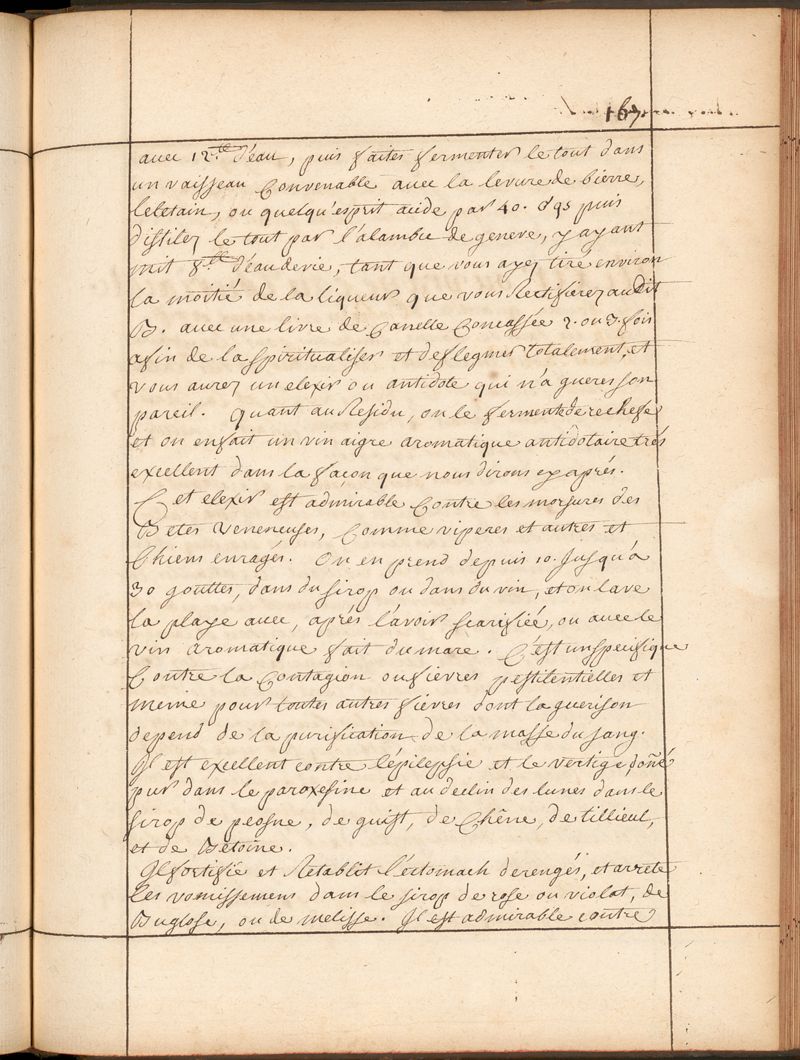 167
avec 12.lt d'eau, puis faites fermenter le tout dans
un vaisseau Convenable avec la levure de bierre,
le letain, ou quelqu'esprit acide par 40. j.rs puis
distilez le tout par l'alambic de geneve, y ayant
mit 8.lt d'eau de vie, tant que vous ayez tiré environ
la moitié de la liqueur que vous Rectifierez au dit
B. avec une livre de Canelle Concassée 2. ou 3. fois
afin de la spiritualiser et deflegmer totalement, et
vous aurez un elexir ou antidote qui n'a gueres son
pareil. Quant au Residu, on le fermente derechefe
et on en fait un vin aigre aromatique antidotaire trés
excellent dans la façon que nous dirons cy aprés.
Cet elexir est admirable Contre les morsures des
Betes Veneneuses, Comme viperes et autres et
Chiens enragés. On en prend depuis 10. Jusqu'a
30 gouttes, dans du sirop ou dans du vin, et on lave
la playe avec, aprés l'avoir scarifiée, ou avec le
vin aromatique fait du marc. C'est un specifique
Contre la Contagion ou fievres pestilentielles et
meme pour toutes autres fievres dont la guerison
depend de la purification de la masse du sang.
Il est excellent contre l'épilepsie et le vertige, doñé
pur dans le paroxesine et au declin des lunes dans le
sirop de peosne, de guist, de Chêne, de tillieul,
et de Betoine.
Il fortifie et Retablit l'estomach derengés, et arrete
les vomissemens dans le sirop de rose ou violat, de
Buglose, ou de melisse. Il est admirable contre